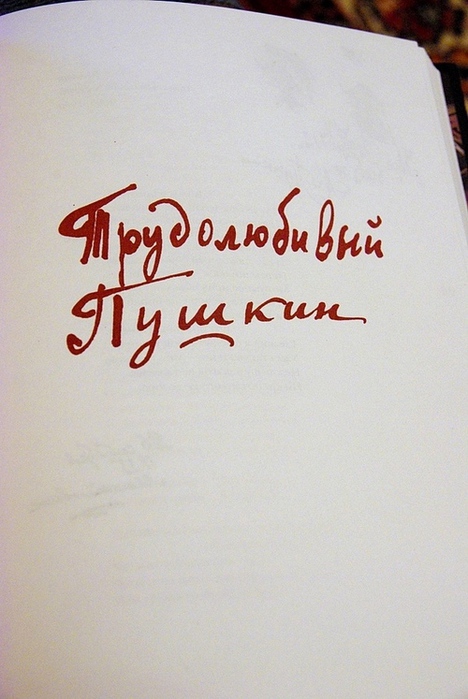 Трудолюбивый
Пушкин